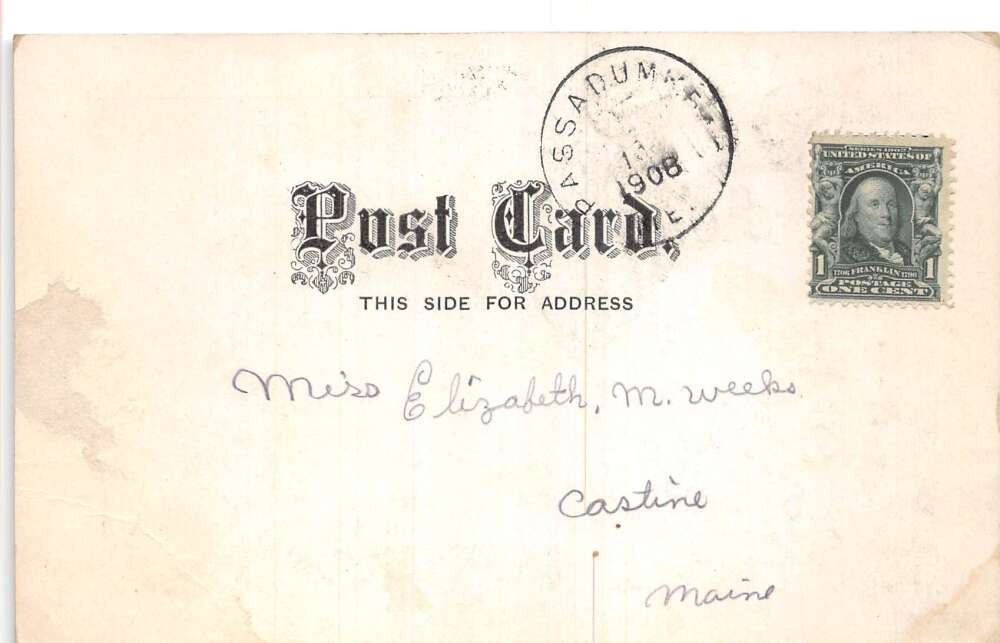 PASSADUMKEAG
1908
ME.
SERIES 1902
UNITED STATES OF
AMERICA
1706 FRANKLIN 1790
1 1
POSTAGE
ONE CENT
Post Card.
THIS SIDE FOR ADDRESS
Miss Elizabeth, M. Weeks
Castine
Maine